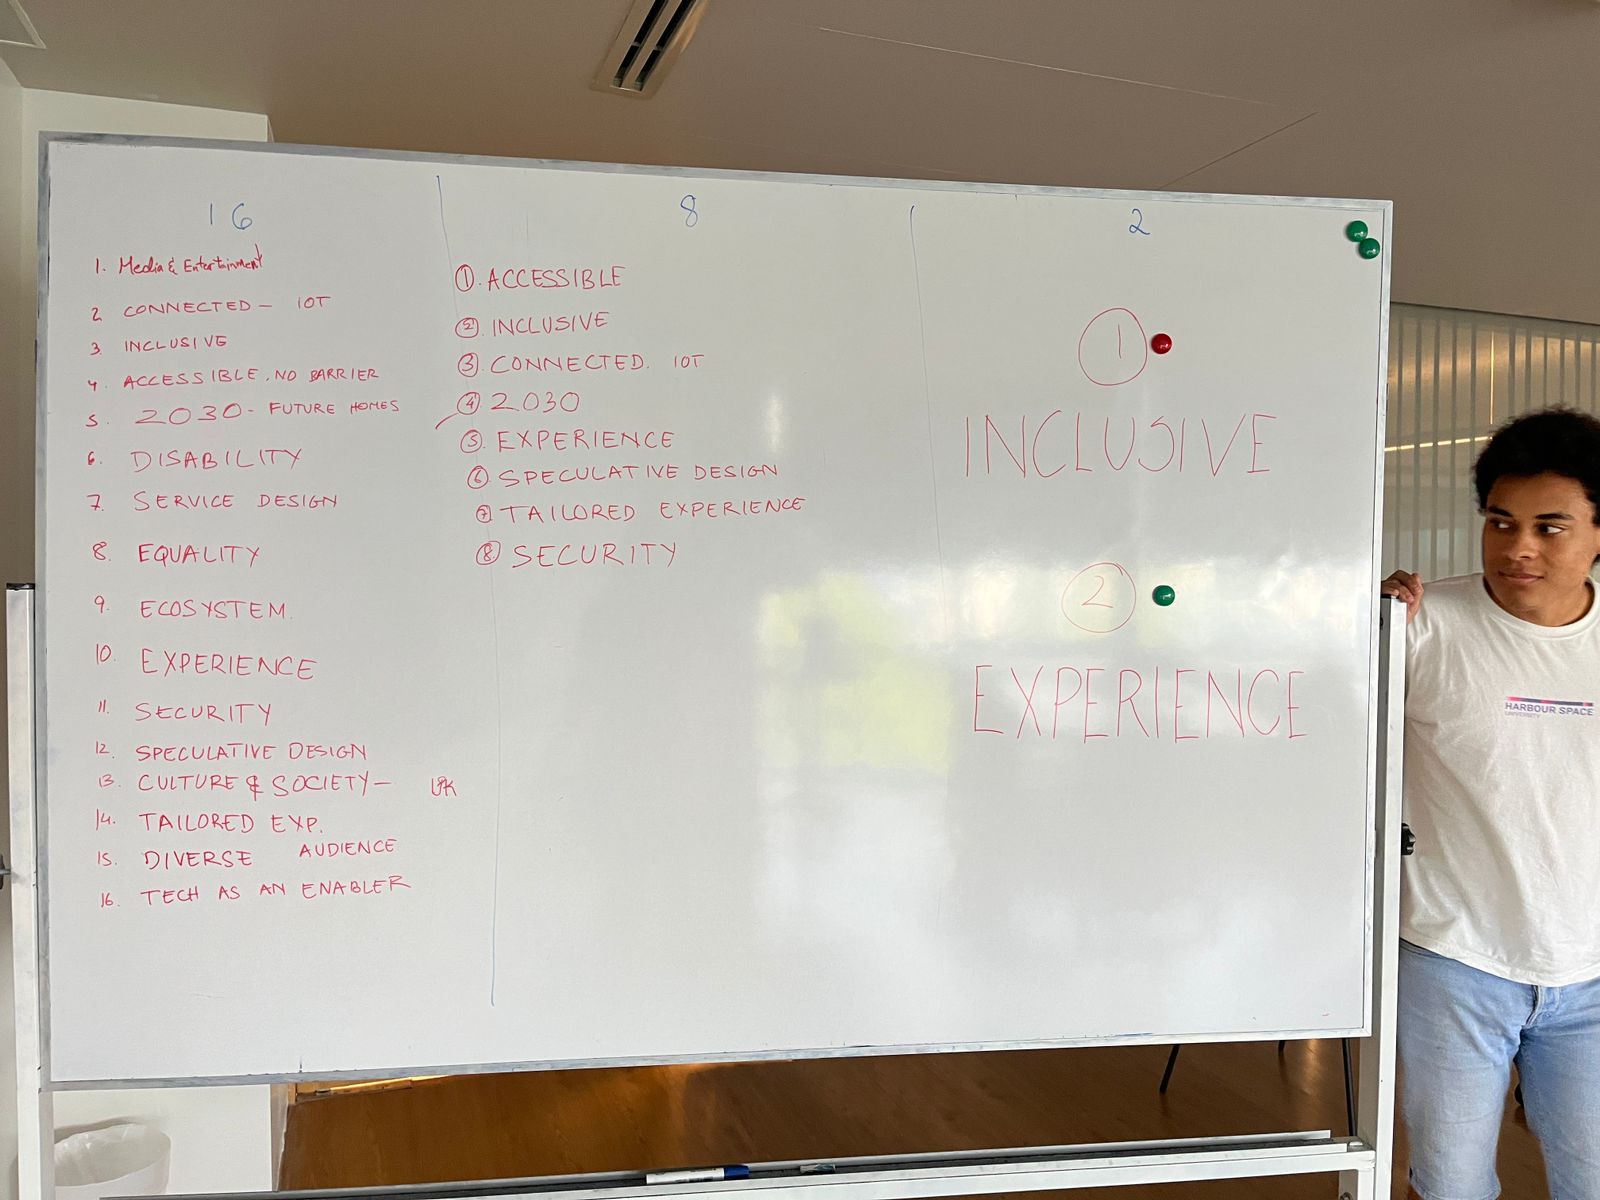 16
1. Media & Entertainment
2 CONNECTED - IOT
3. INCLUSIVE
4. ACCESSIBLE. NO BARRIER
5. 2030 - FUTURE HOMES
6. DISABILITY
7. SERVICE DESIGN
8. EQUALITY
9. ECOSYSTEM.
10. EXPERIENCE
11. SECURITY
12. SPECULATIVE DESIGN
13. CULTURE & SOCIETY - UK
14. TAILORED EXP.
15. DIVERSE AUDIENCE
16. TECH AS AN ENABLER
8
1. ACCESSIBLE
2. INCLUSIVE
3. CONNECTED. IOT
4 2030
5 EXPERIENCE
6. SPECULATIVE DESIGN
7 TAILORED EXPERIENCE
8. SECURITY
2
1
INCLUSIVE
2
EXPERIENCE
HARBOUR SPACE
UNIVERSITY